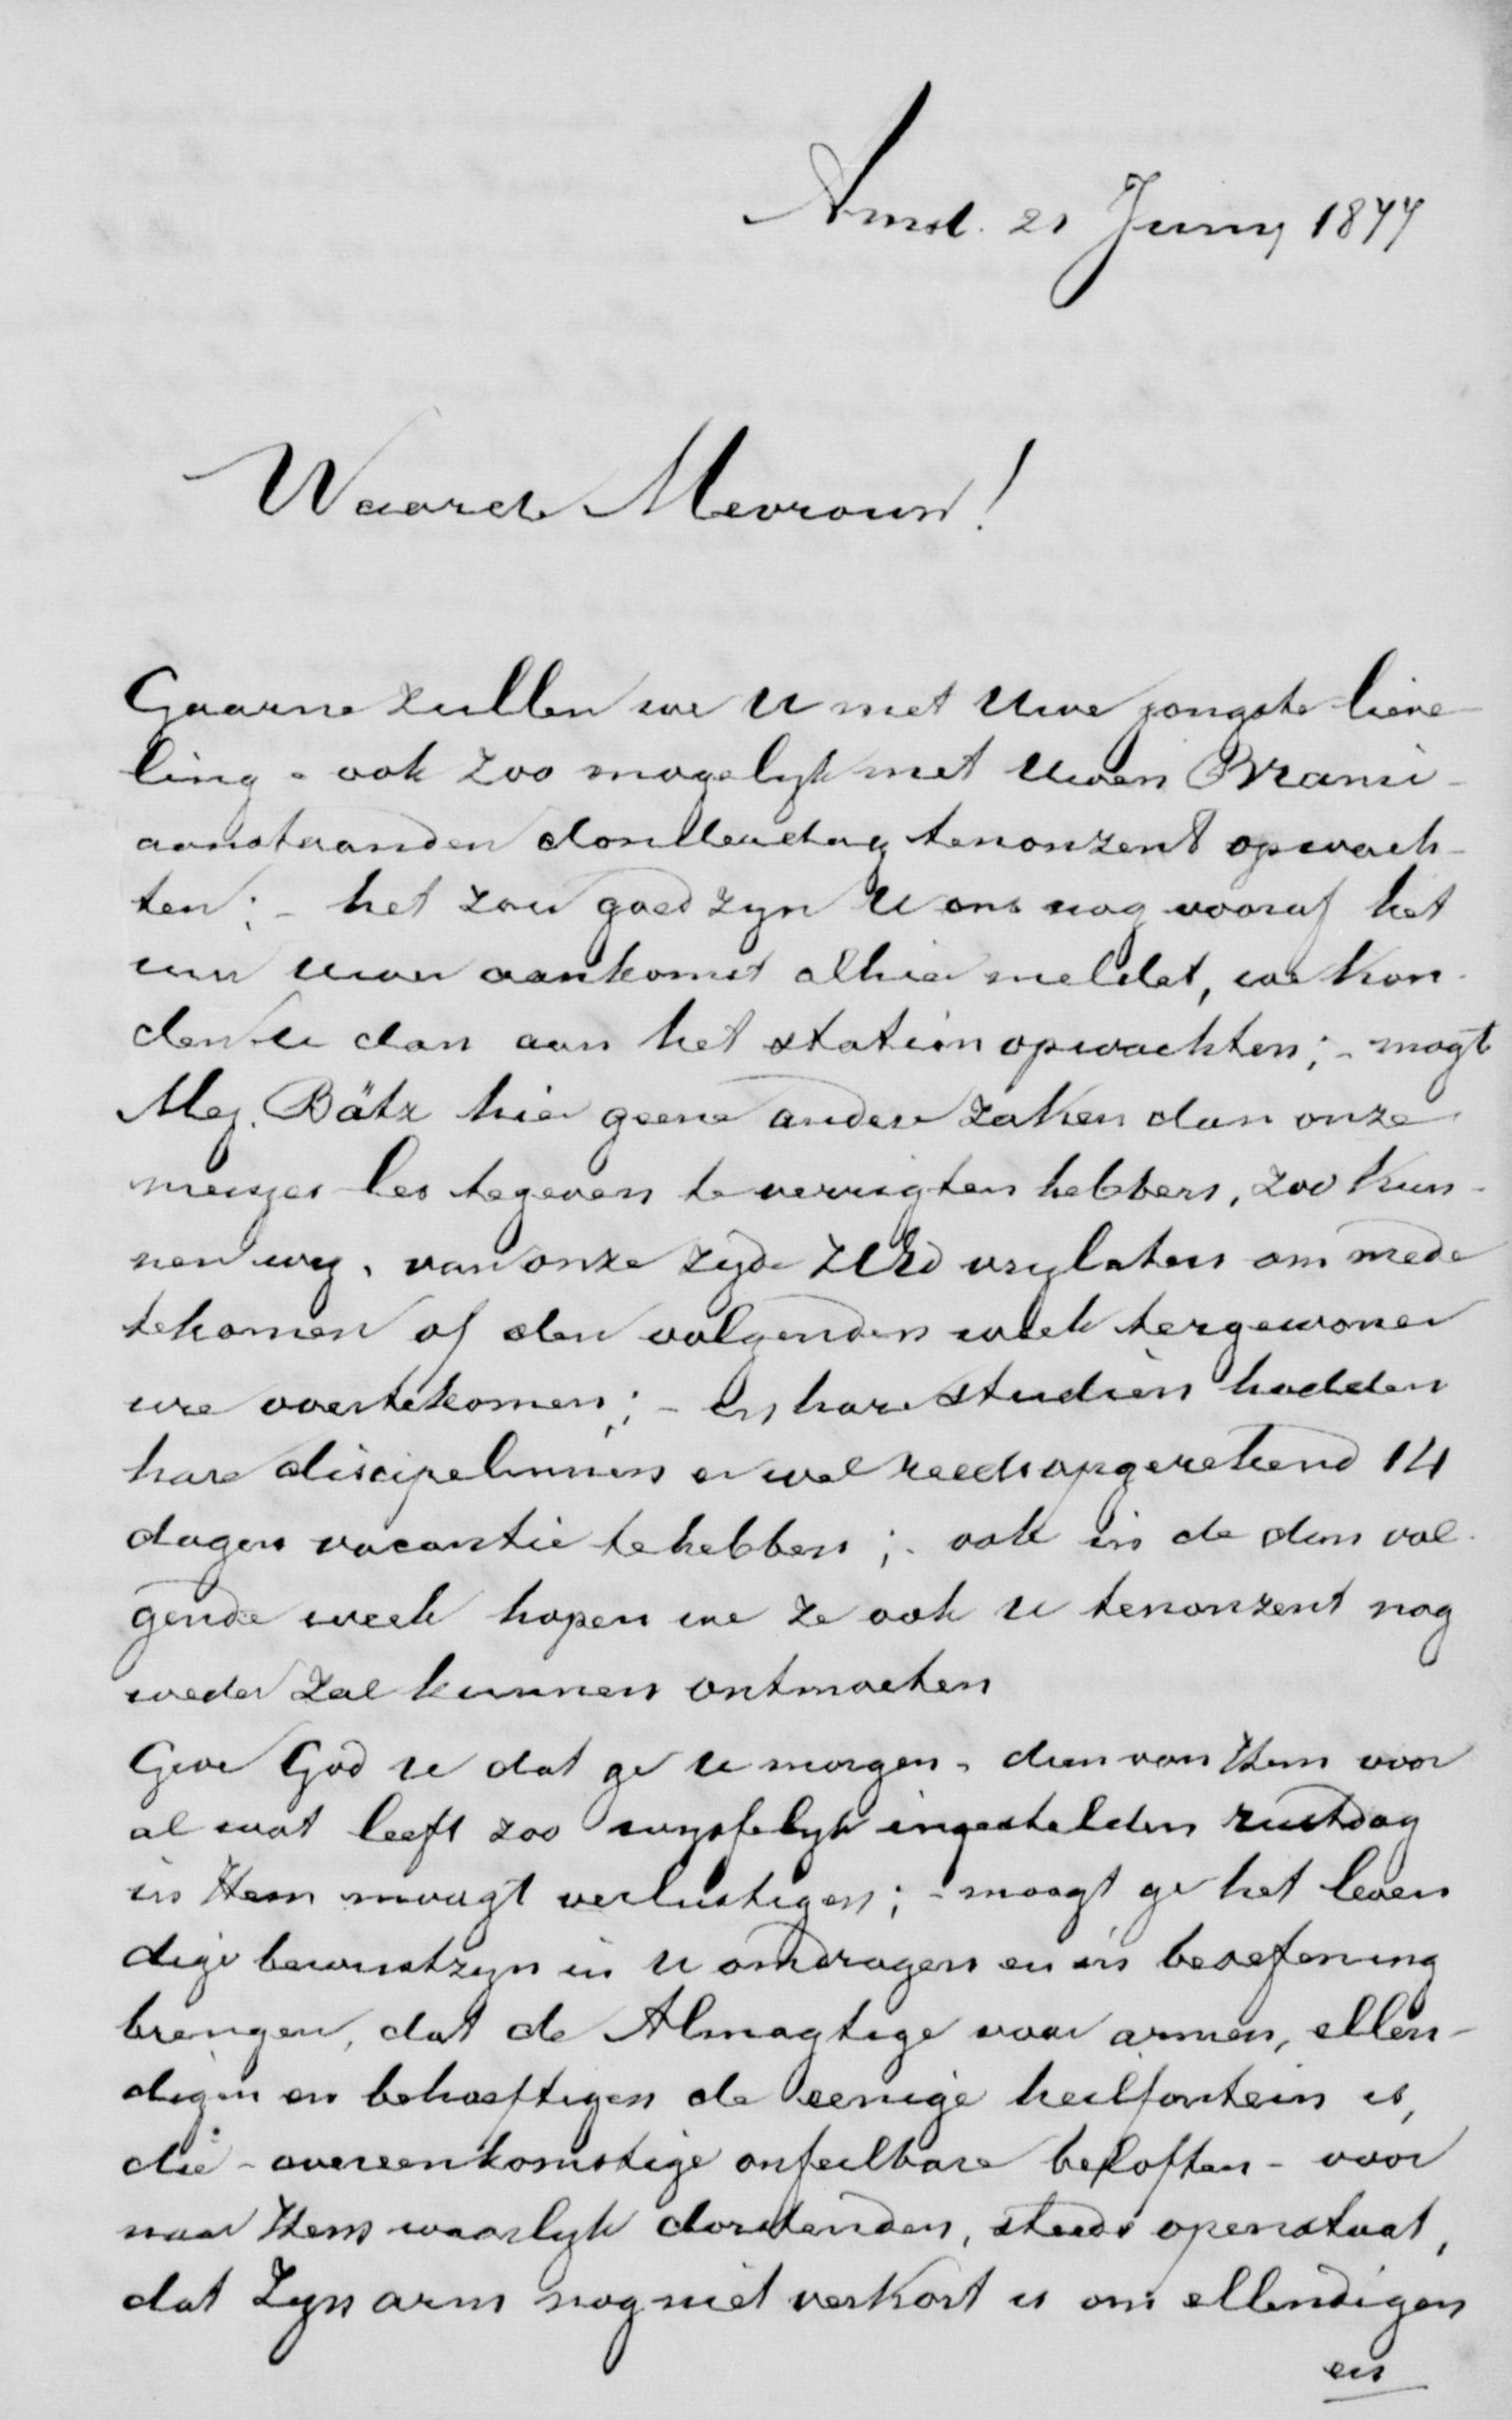 Amst. 21 Juny 1877
Waarde Mevrouw!
Gaarne zullen we U met Uwe jongste lieve-
ling - ook zoo mogelyk met Uwen Brami -
aanstaanden donderdag tenonzent opwach-
ten; - het zou goed zyn U ons nog vooraf het
uur uwer aankomst alhier meldet, we kon-
den U dan aan het station opwachten; - mogt
Mej. Bätz hier geene andere zaken dan onze
meisjes les tegeven te verrigten hebben, zoo kun-
nen wy, van onze zyde ZEd vrylaten om mede
tekomen of den volgenden week tergewoner
ure overtekomen; - en hare studien hadden
hare discipelinnen er wel reeds opgerekend 14
dagen vacantie tehebben; - ook in de dan vol-
gende week hopen we ze ook U tenonzent nog
weder zal kunnen ontmoeten
Geve God U dat ge U morgen - dien van Hem voor
al wat leeft zoo wysselyk ingestelden rustdag
in Hem moogt verlustigen; - moogt ge het leven
dige bewustzyn in U omdragen en in beoefening
brengen, dat de Almagtige voor armen, ellen-
digen en behoeftigen de eenige heilfontein is,
die - overeenkomstige onfeilbare beloften - voor
naar Hem waarlyk dorstenden, steeds openstaat,
dat Zyn arm nog niet verkort is om ellendigen
en